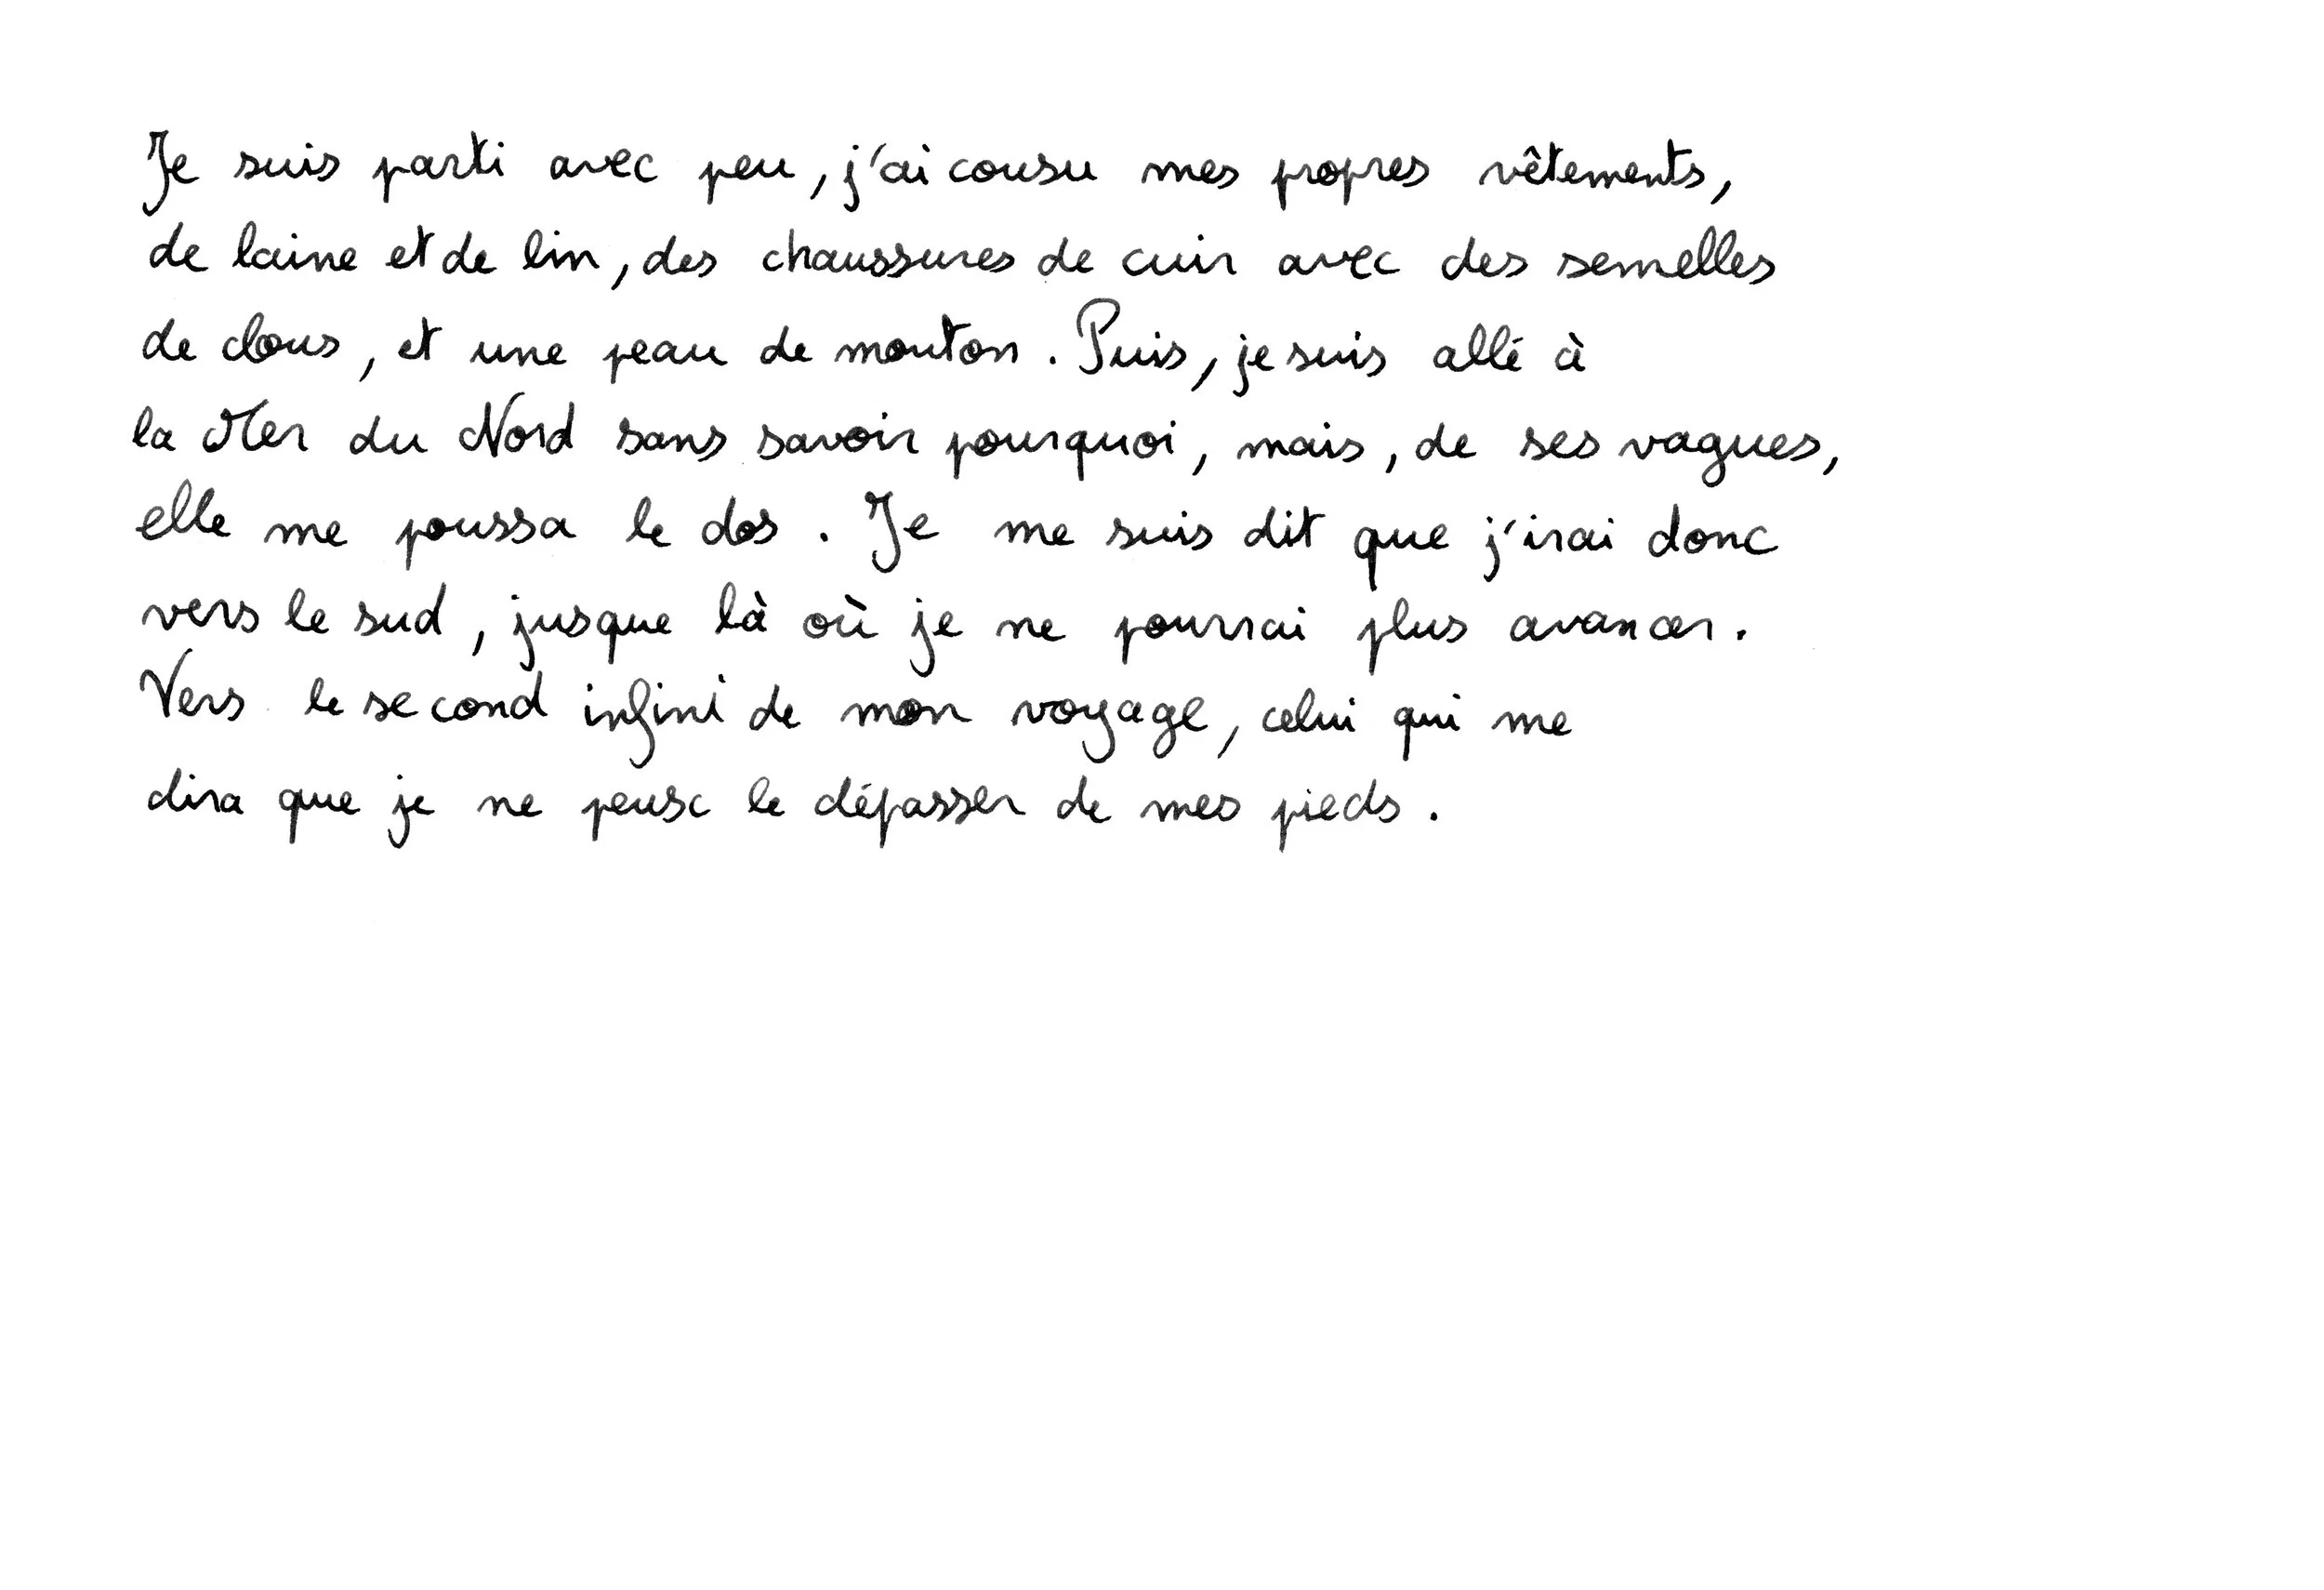 Je suis parti avec peu, j'ai cousu mes propres vêtements,
de laine et de lin, des chaussures de cuir avec des semelles
de clous, et une peau de mouton. Puis, je suis allé à
la Mer du Nord sans savoir pourquoi, mais, de ses vagues,
elle me poussa le dos. Je me suis dit que j'irai donc
vers le sud, jusque là où je ne pourrai plus avancer.
Vers le second infini de mon voyage, celui qui me
dira que je ne peux le dépasser de mes pieds.